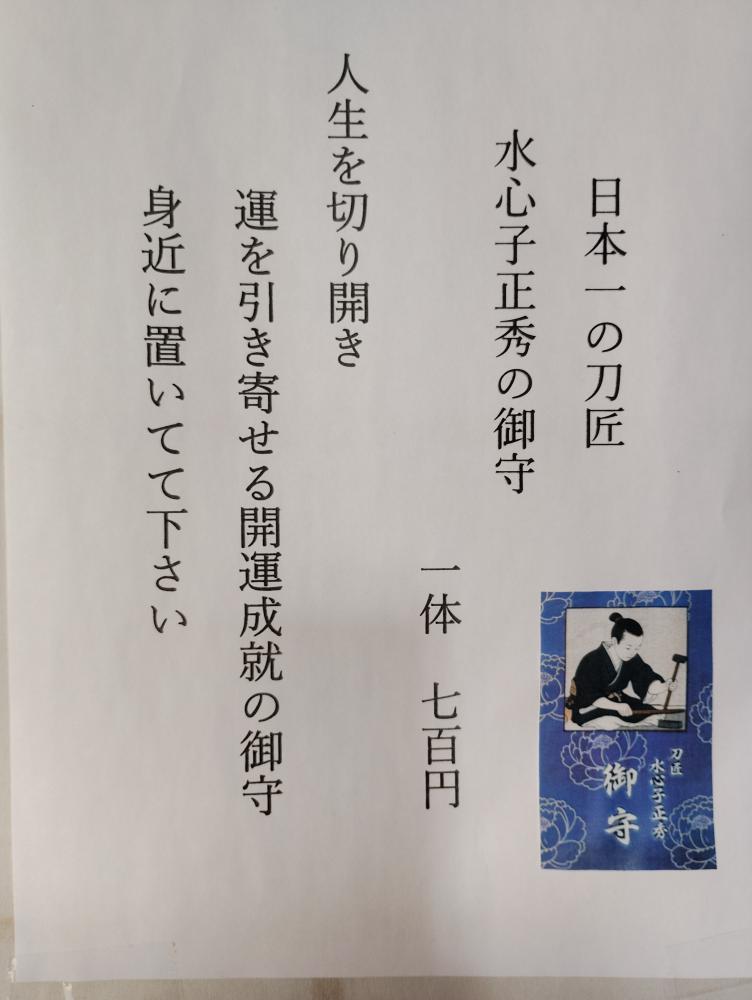 日本一の刀匠
水心子正秀の御守
一体　七百円
人生を切り開き
運を引き寄せる開運成就の御守
身近に置いてて下さい
刀匠
水心子正秀
御守